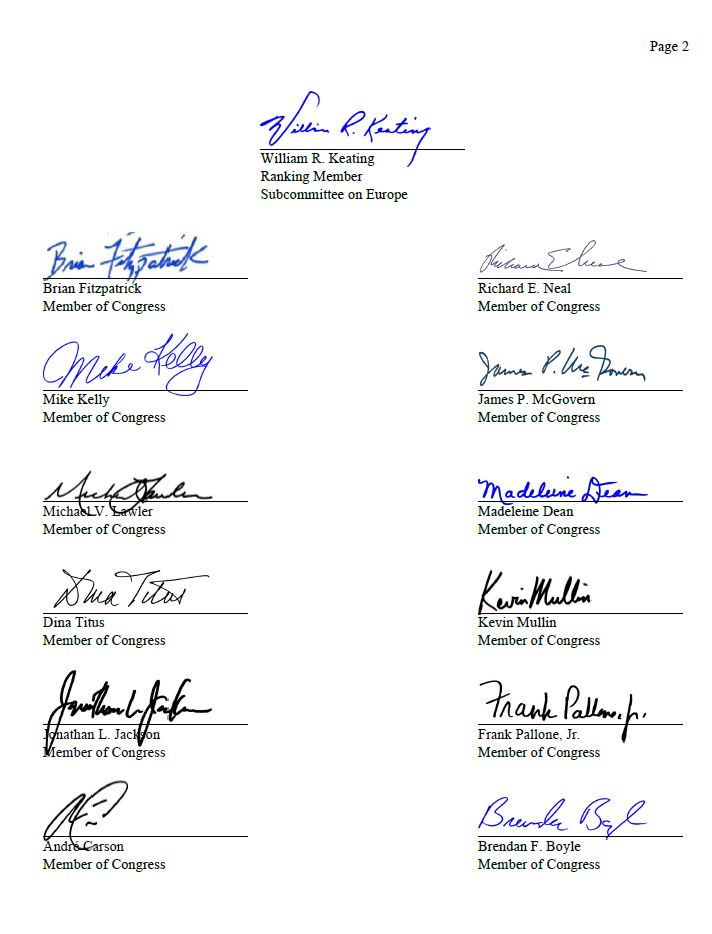 Page 2
William R. Keating
William R. Keating
Ranking Member
Subcommittee on Europe
Brian Fitzpatrick
Richard E. Neal
Brian Fitzpatrick
Richard E. Neal
Member of Congress
Member of Congress
Mike Kelly
James P. McGovern
Mike Kelly
James P. McGovern
Member of Congress
Member of Congress
Madeleine Dean
Michael V. Lawler
Madeleine Dean
Member of Congress
Member of Congress
Dina Titus
Kevin Mullin
Dina Titus
Kevin Mullin
Member of Congress
Member of Congress
Jonathan L. Jackson
Frank Pallone, Jr.
Jonathan L. Jackson
Frank Pallone, Jr.
Member of Congress
Member of Congress
Brendan Boyle
André Carson
Brendan F. Boyle
Member of Congress
Member of Congress